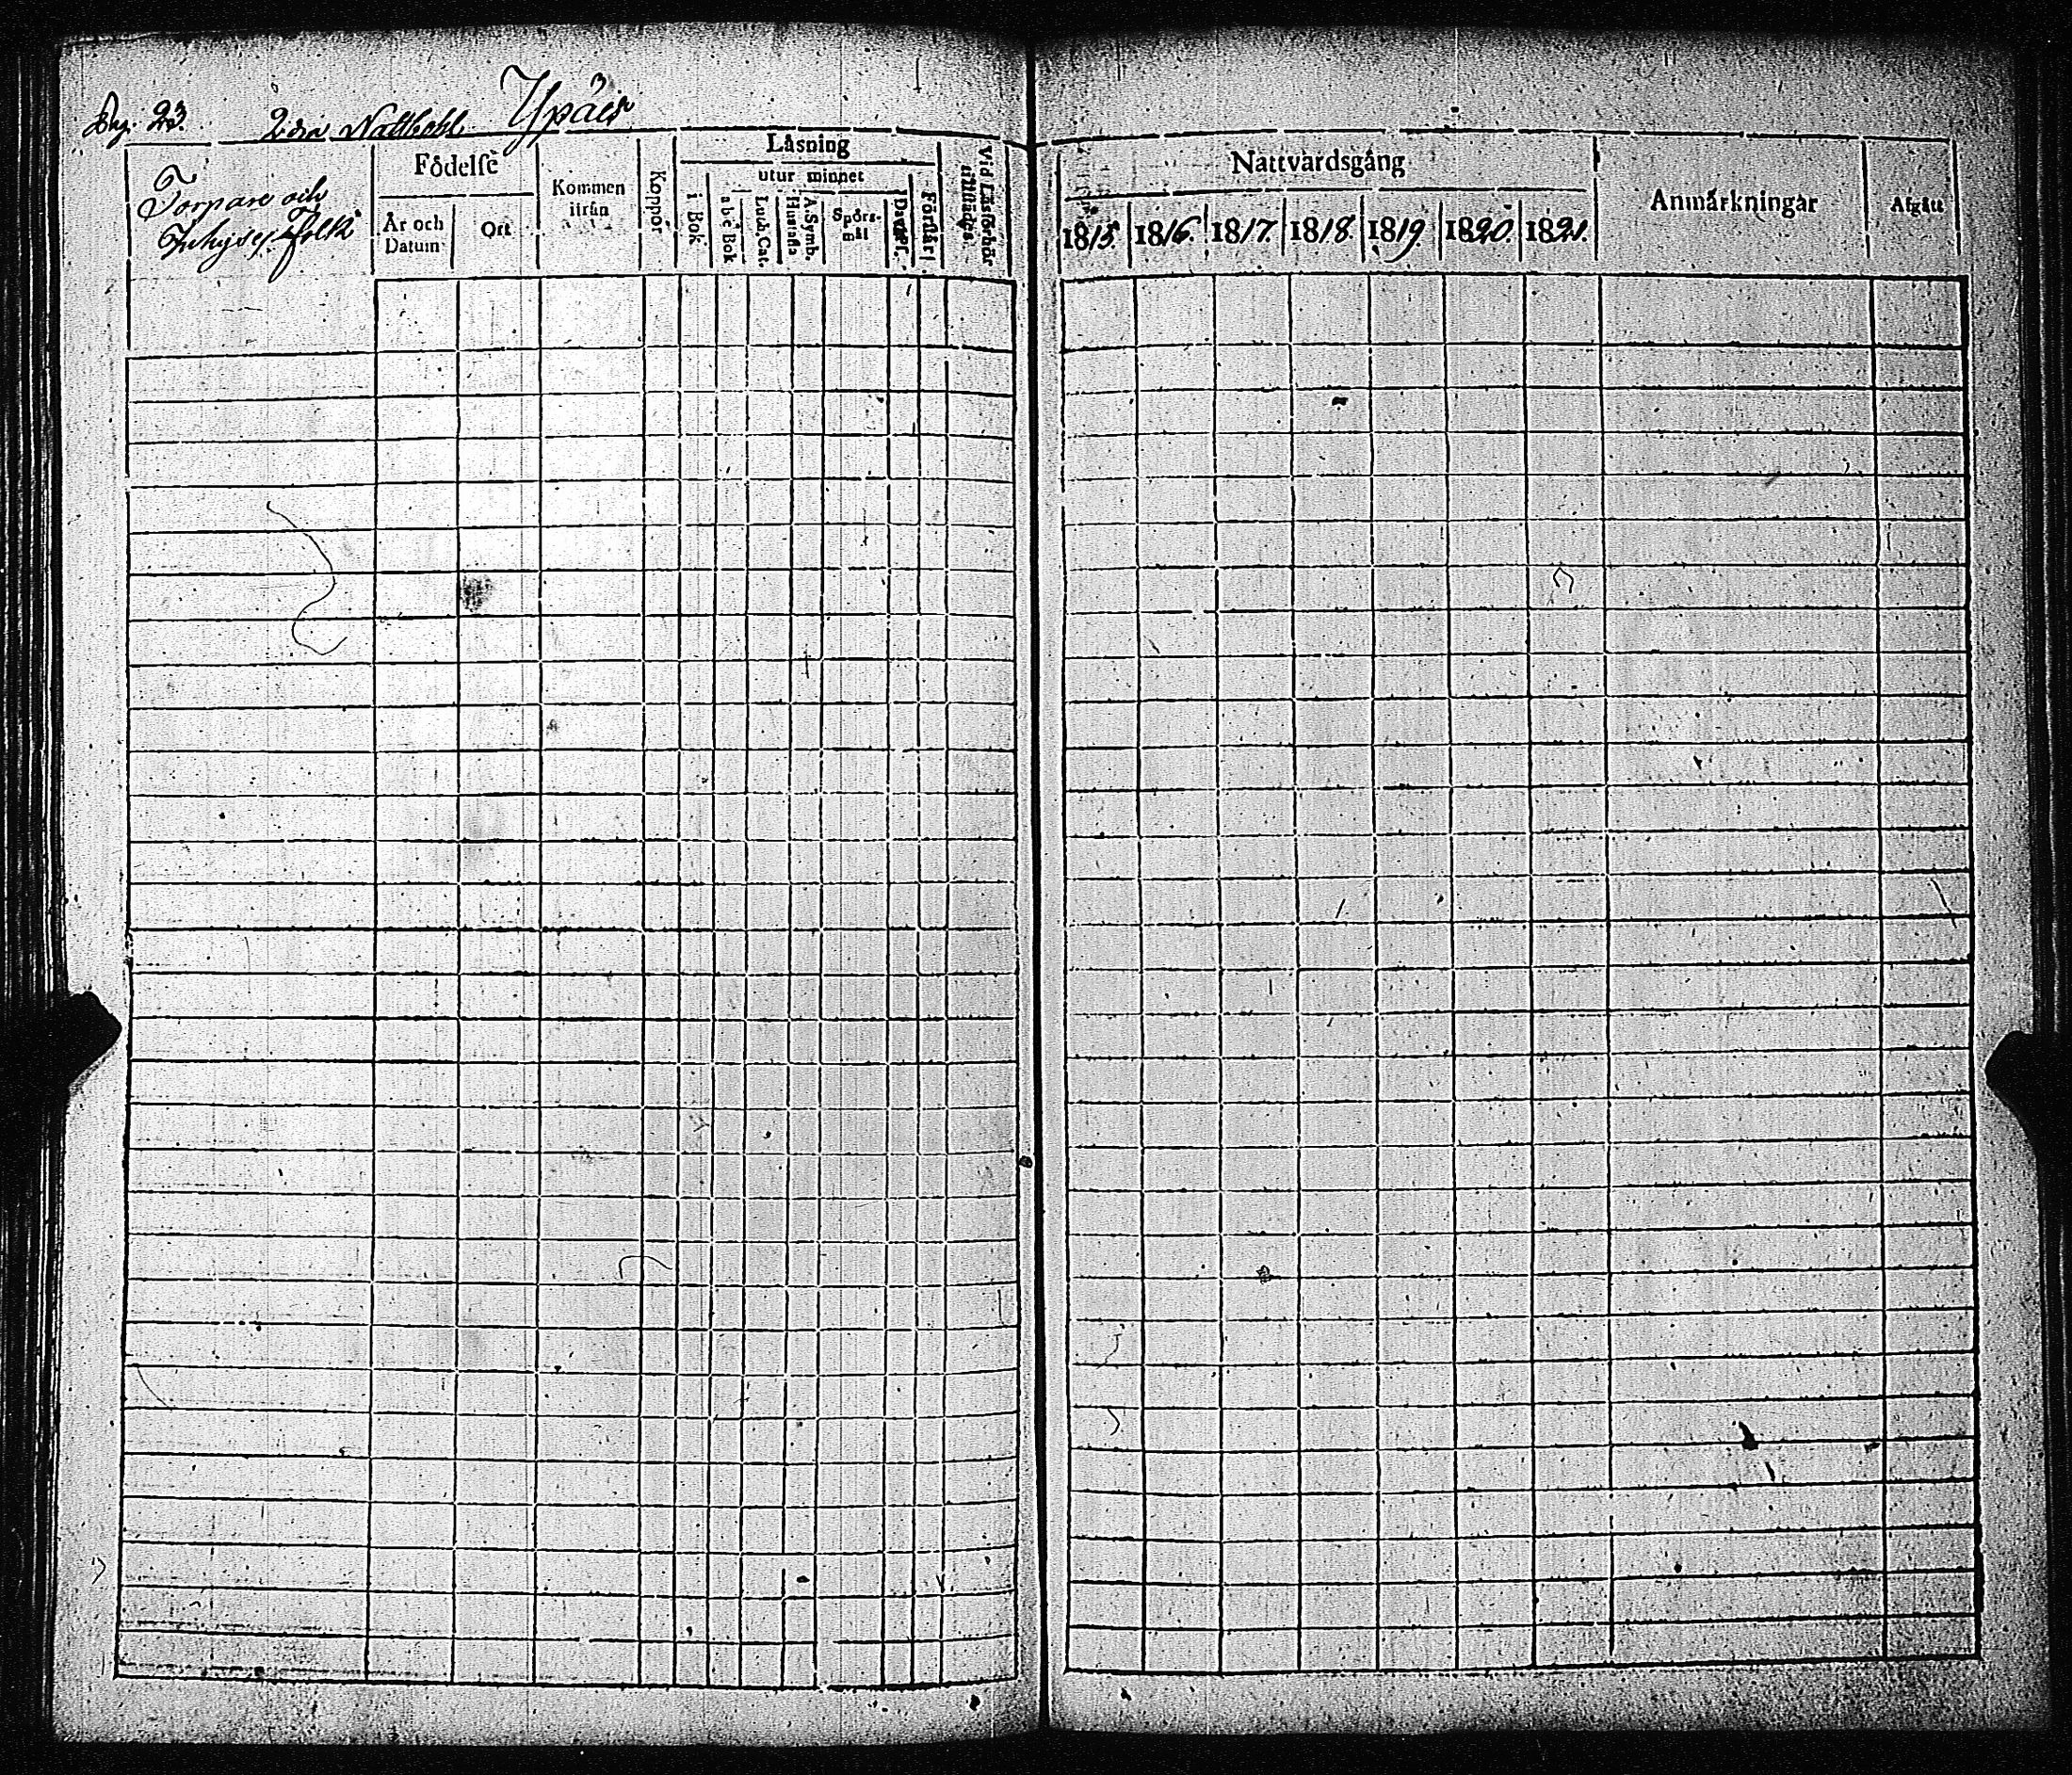 Pag. 23. 2:dra Nattlaht Ypäis
Torpare och
Inhyses Folk
Födelse
År och
Datum
Ort
Kommen
ifrån
Koppor
Läsning
i Bok
utur minnet
a b c Bok
Luth. Cat.
A. Symb.
Hustafla
Spörs-
mål
Dav. Ps.
Förstår
Vid Läsförhör
tillstädes.
Nattvardsgång
1815. 1816. 1817. 1818. 1819. 1820. 1821.
Anmärkningar
Afgått